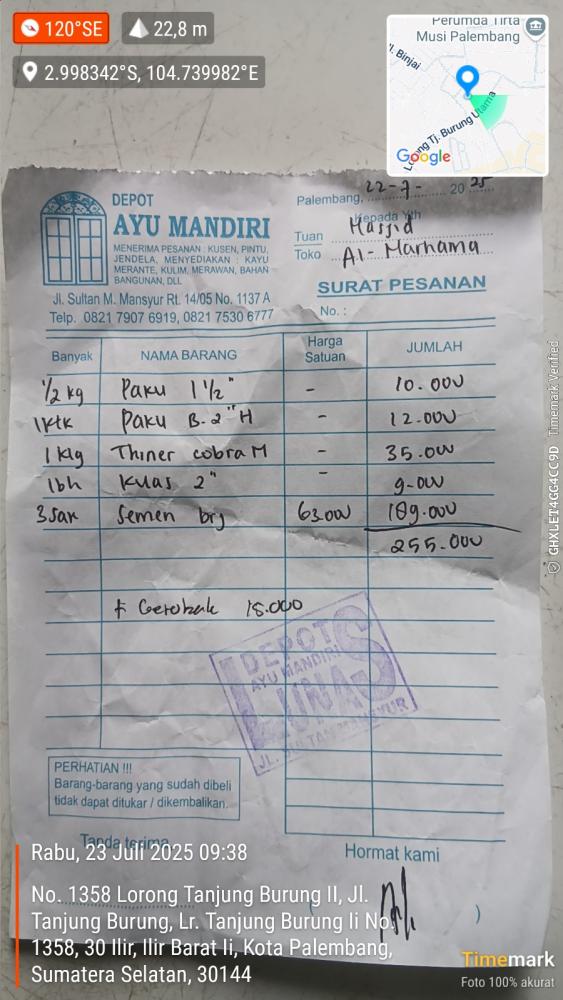 120°SE
22,8 m
2.998342°S, 104.739982°E
Perumda Tirta
Musi Palembang
Jl. Binjai
Lorong Tj. Burung Utama
Google
DEPOT
AYU MANDIRI
MENERIMA PESANAN : KUSEN, PINTU,
JENDELA, MENYEDIAKAN : KAYU
MERANTE, KULIM, MERAWAN, BAHAN
BANGUNAN, DLL
Jl. Sultan M. Mansyur Rt. 14/05 No. 1137 A
Telp. 0821 7907 6919, 0821 7530 6777
Palembang, 22-7- 20 25
Kepada Yth
Tuan Masjid
Toko Al-Marhama
SURAT PESANAN
No. :
Banyak NAMA BARANG Harga Satuan JUMLAH
1/2 kg Paku 1 1/2" - 10.000
1 ktk Paku B. 2" H - 12.000
1 klg Thiner cobra M - 35.000
1 bh Kuas 2" - 9.000
3 sak Semen brj 63.000 189.000
255.000
+ Gerobak 15.000
DEPOT
AYU MANDIRI
LUNAS
JL. SULTAN MANSYUR
PERHATIAN !!!
Barang-barang yang sudah dibeli
tidak dapat ditukar / dikembalikan.
Tanda terima
Hormat kami
( )
Rabu, 23 Juli 2025 09:38
No. 1358 Lorong Tanjung Burung II, Jl.
Tanjung Burung, Lr. Tanjung Burung Ii No.
1358, 30 Ilir, Ilir Barat Ii, Kota Palembang,
Sumatera Selatan, 30144
Timemark
Foto 100% akurat
GHXLET4GG4CC9D Timemark Verified